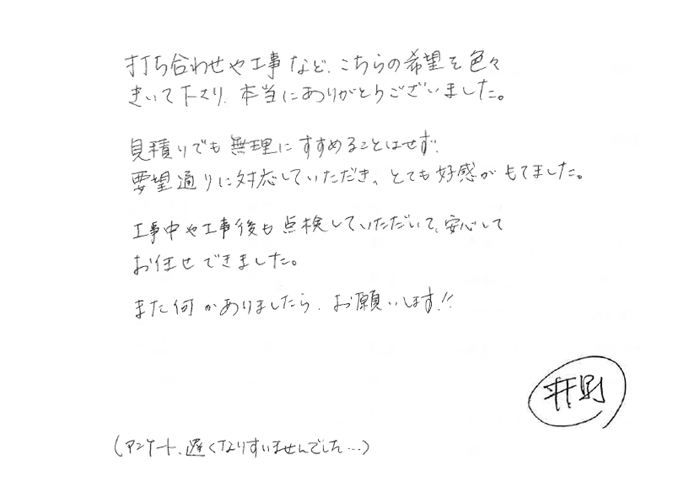 打ち合わせや工事など、こちらの希望を色々
きいて下さり、本当にありがとうございました。
見積りでも無理にすすめることはせず、
要望通りに対応していただき、とても好感がもてました。
工事中や工事後も点検していただいて、安心して
お任せできました。
また何かありましたら、お願いします!!
(アンケート、遅くなりすいませんでした…)